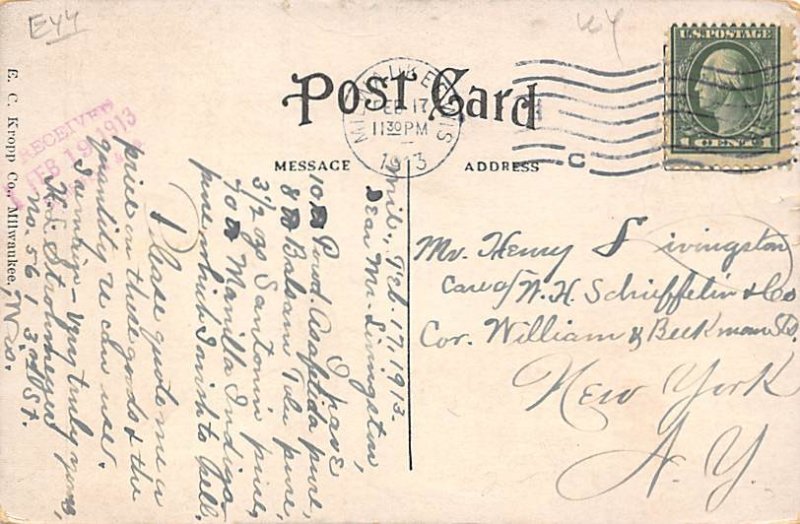 E44
Post Card
MESSAGE
ADDRESS
MILWAUKEE, WIS
FEB 17
11 30 PM
1913
C
U.S. POSTAGE
1 CENT 1
RECEIVED
FEB 19 1913
E. C. Kropp Co., Milwaukee,
No.
Mil., Feb. 17, 1913.
Dear Mr. Livingston,
I have
10 # Powd. Asafetida pure,
8 # Balsam Tolu pure,
3 1/2 oz Santonin pure,
40 # Manilla Indigo
pure, which I wish to sell.
Please quote me a
price on these goods & the
quantity u can use.
I remain - Very truly yours,
H. L. Strohmeyer,
No. 561 3rd St.
Mr. Henry Livingston
Care of W. H. Schieffelin & Co
Cor. William & Beekman Sts.
New York
N. Y.